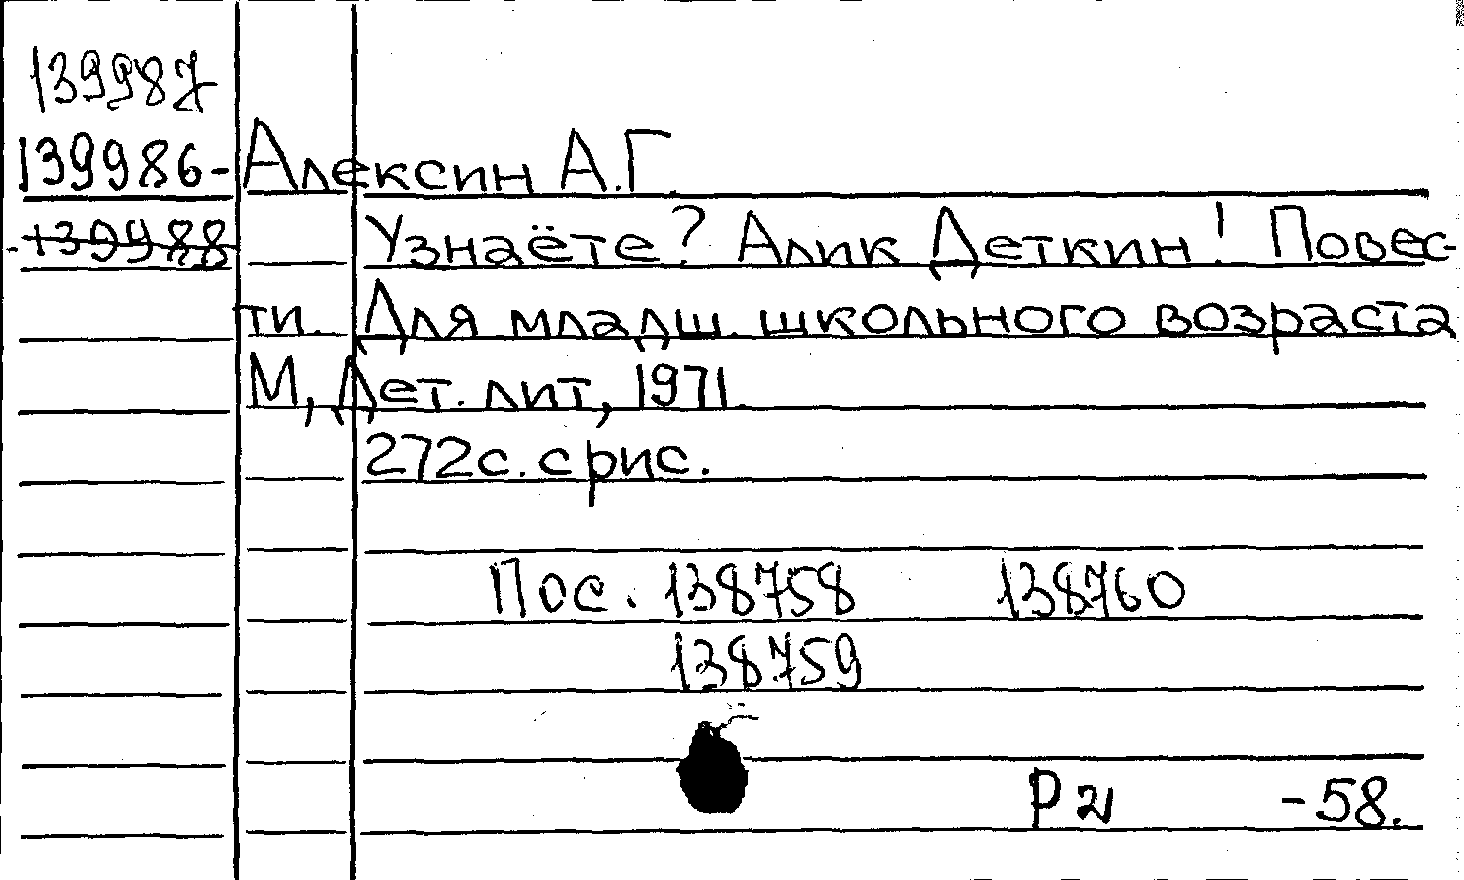 139987
139986- Алексин А.Г.
139988 Узнаёте? Алик Деткин! Повес-
ти. Для младш. школьного возраста
М, Дет. лит, 1971.
272с. с рис.
Пос. 138758 138760
138759
-58.